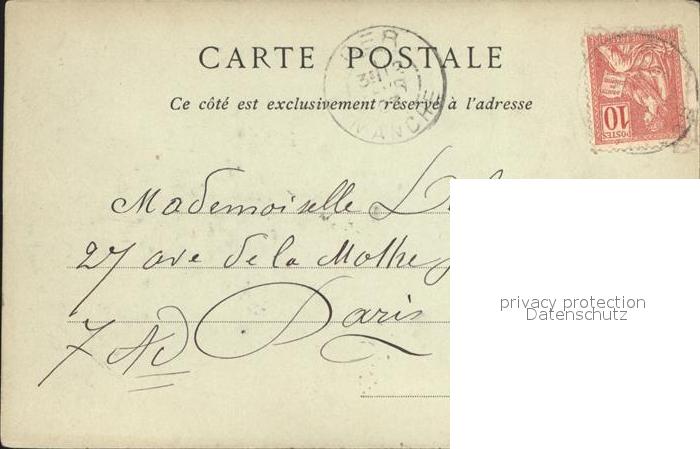 CARTE POSTALE
Ce côté est exclusivement réservé à l'adresse
MANCHE
10
POSTES
Mademoiselle
27 ave de la Mothe
Paris
7 Ad
privacy protection
Datenschutz